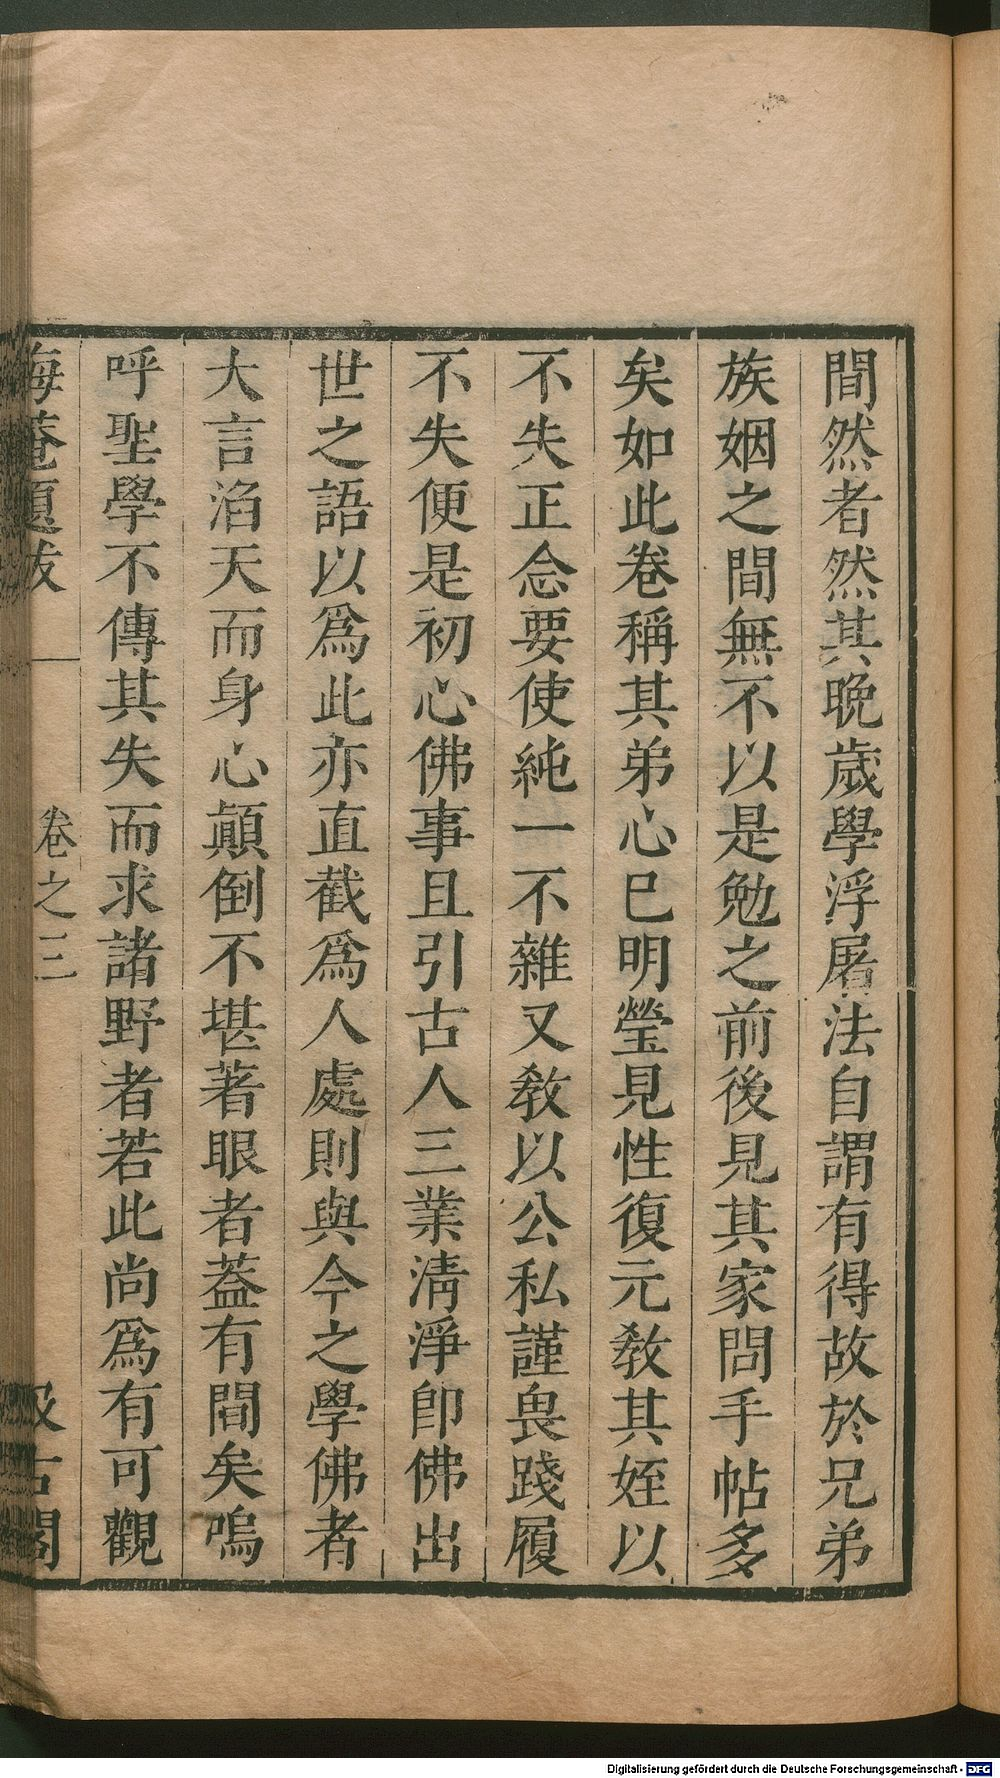 間然者然其晩歲學浮屠法自謂有得故於兄弟
族姻之間無不以是勉之前後見其家問手帖多
矣如此卷稱其弟心已明瑩見性復元敎其姪以
不失正念要使純一不雜又敎以公私謹畏踐履
不失便是初心佛事且引古人三業淸淨卽佛出
世之語以爲此亦直截爲人處則與今之學佛者
大言滔天而身心顚倒不堪著眼者葢有間矣嗚
呼聖學不傳其失而求諸野者若此尚爲有可觀
晦菴題跋
卷之三
汲古閣
Digitalisierung gefördert durch die Deutsche Forschungsgemeinschaft - DFG